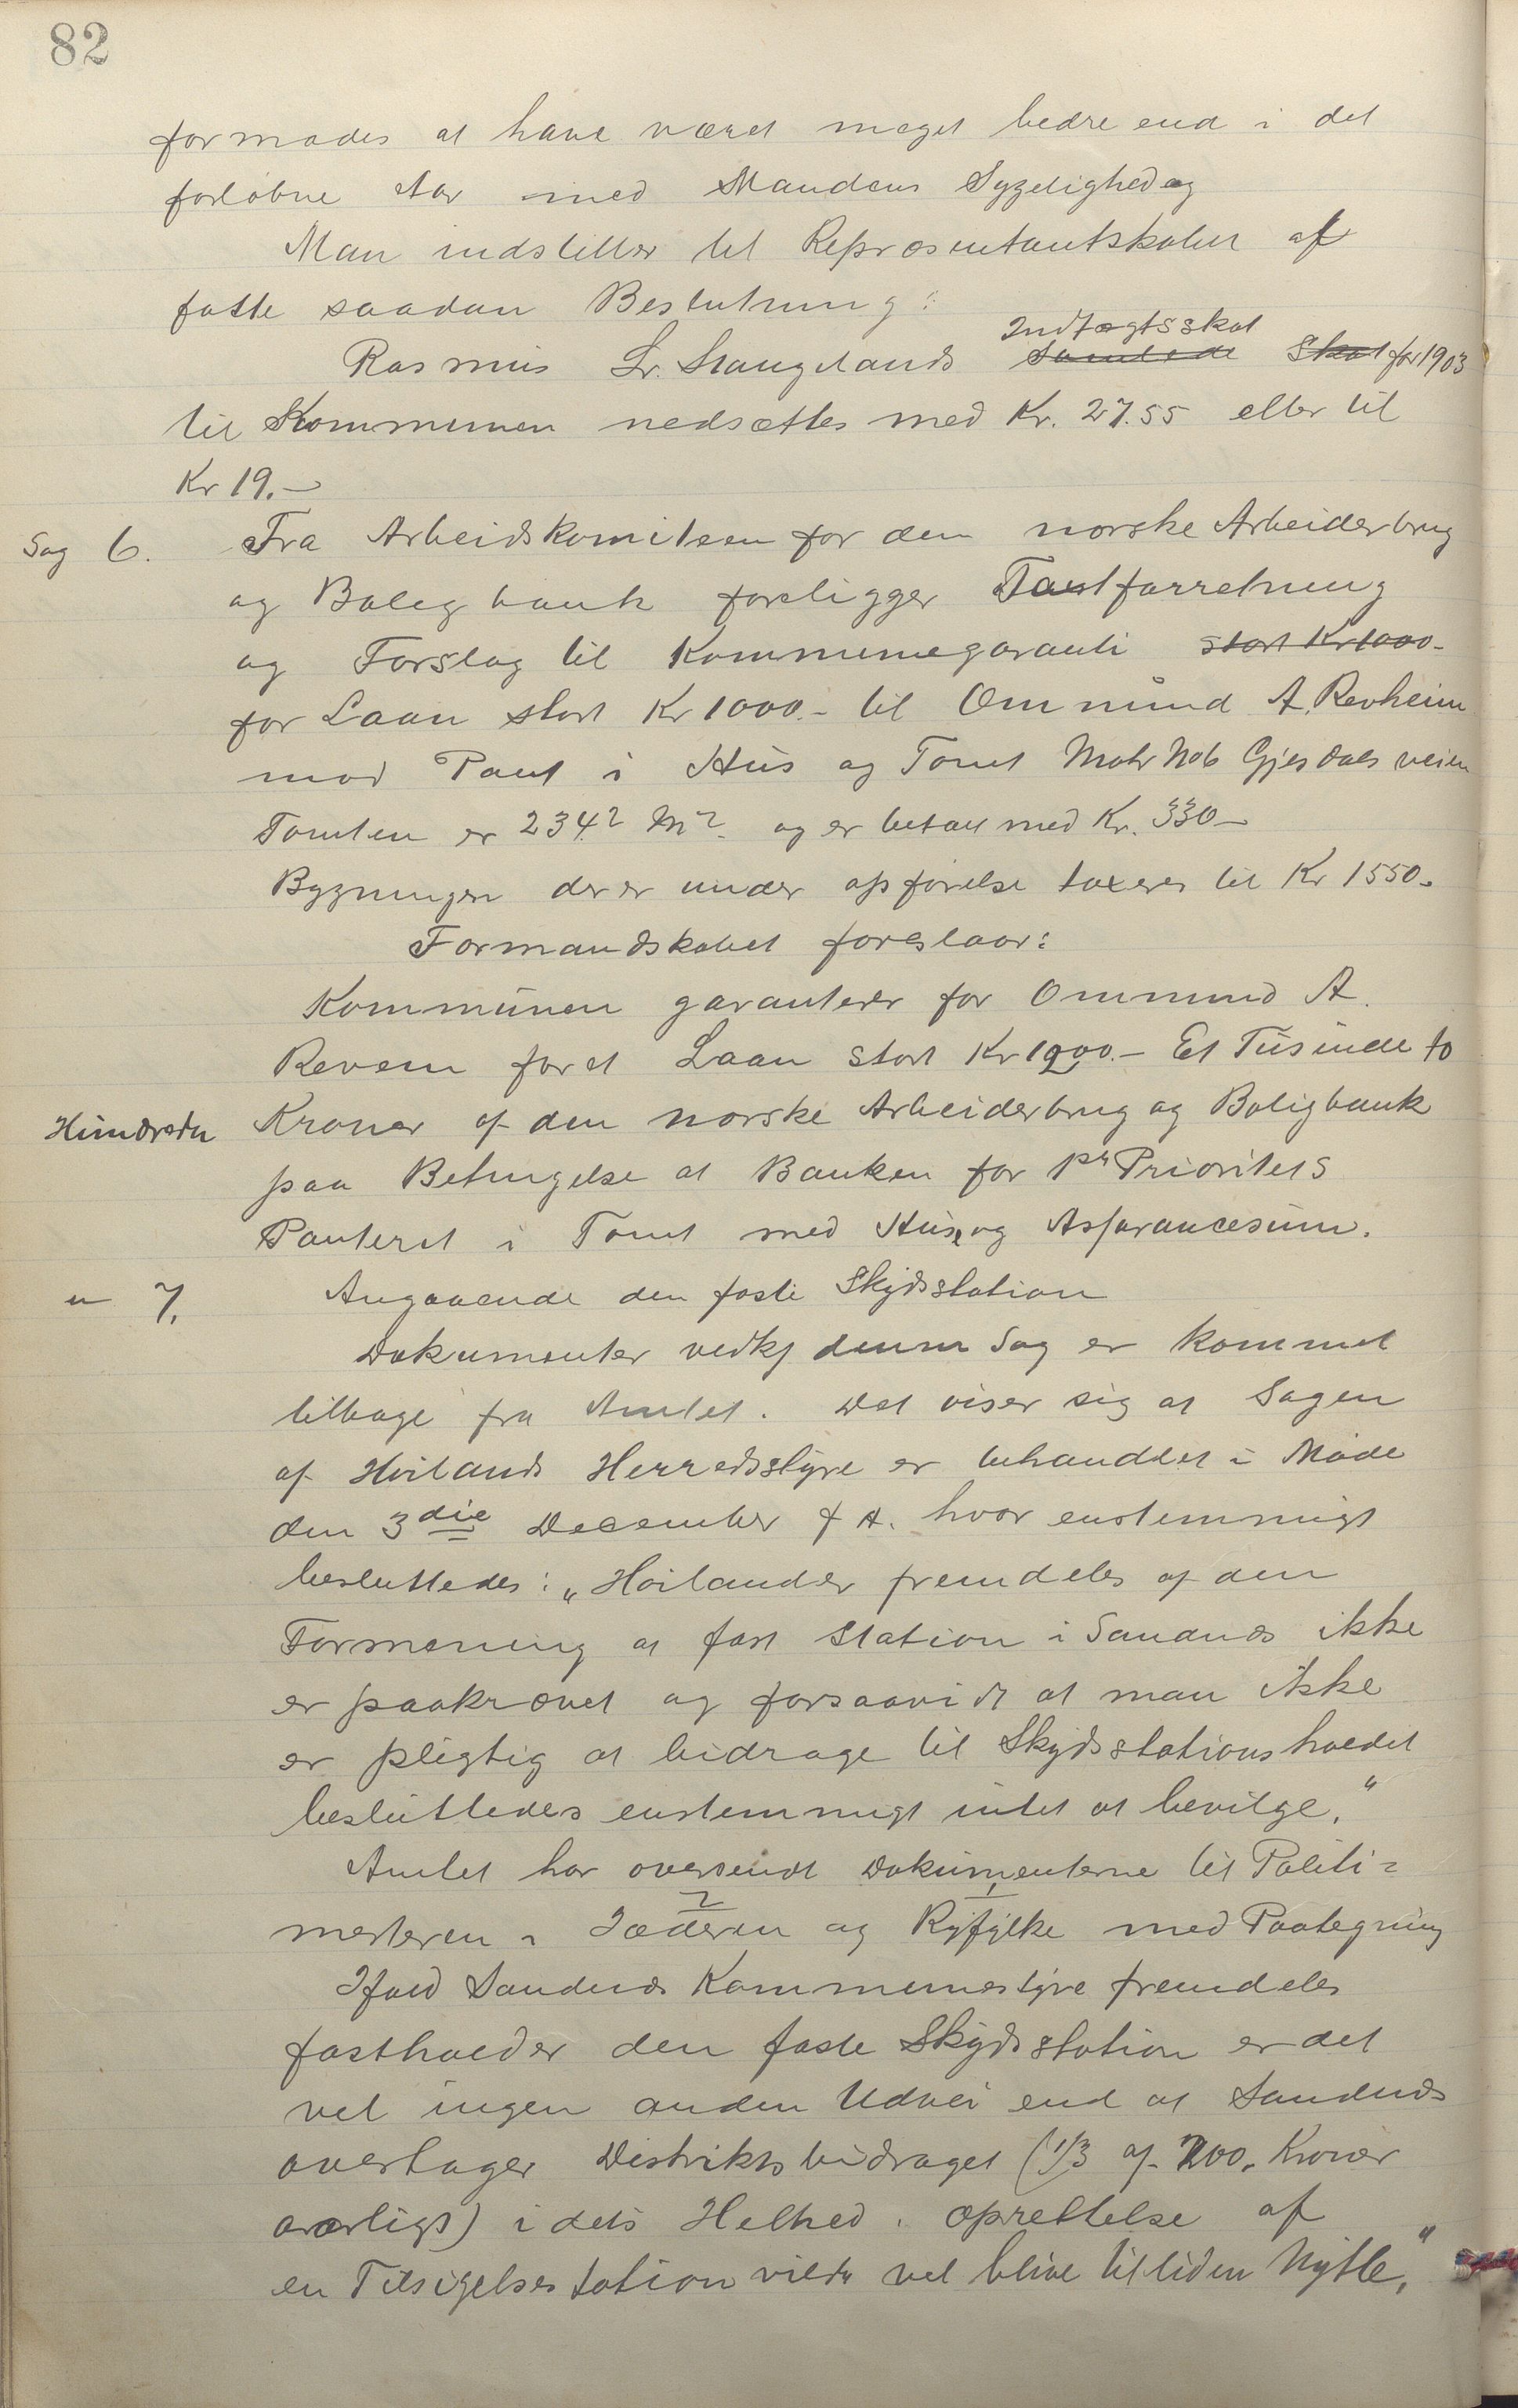 82
formodes at have været meget bedre end i det
forløbne Aar med Mandens Sygelighed og
Man indstiller til Repræsentantskabet at
fatte saadan Beslutning:
Indtægtsskat
Rasmus Sr. Stangelands Samlede Skat for 1903
til Kommunen nedsættes med Kr. 27.55 eller til
Kr 19.—
Sag 6. Fra Arbeidskomiteen for den norske Arbeiderbrug
og Boligbank foreligger Taxtforretning
og Forslag til Kommunegaranti stort Kr 1000.-
for Laan stort Kr 1000.- til Ommund A. Revheim
mod Pant i Hus og Tomt Matr No 6 Gjesdalsveien
Tomten er 234.2 M2. og er betalt med Kr. 330—
Bygningen der er under opførelse taxeres til Kr 1550.
Formandskabet foreslaar:
Kommunen garanterer for Ommund A.
Revem for et Laan stort Kr 1200.- Et Tusinde to
Hundrede Kroner af den norske Arbeiderbrug og Boligbank
paa Betingelse at Banken for 1ste Prioritets
Panteret i Tomt med Huse og Assurancesum.
" 7. Angaaende den faste Skydsstation
Dokumenter vedkj denne Sag er kommet
tilbage fra Amtet. Det viser sig at Sagen
af Høilands Herredsstyre er behandlet i Møde
den 3die December f A. hvor enstemmigt
besluttedes: „Høiland er fremdeles af den
Formening at fast Station i Sandnæs ikke
er paakrævet og forsaavidt at man ikke
er pligtig at bidrage til Skydsstationsholdet
besluttedes enstemmigt intet at bevilge."
Amtet har oversendt Dokumenterne til Politi=
2 1
mesteren i Jæderen og Ryfylke med Paategning
Ifald Sandnæs Kommunestyre fremdeles
fastholder den faste Skydsstation er det
vel ingen anden Udvei end at Sandnæs
overtager Distriktsbidraget (1/3 af 700. Kroner
aarligt) i dets Helhed. Oprettelse af
en Tilsigelsestation vilde vel blive til liden Nytte."